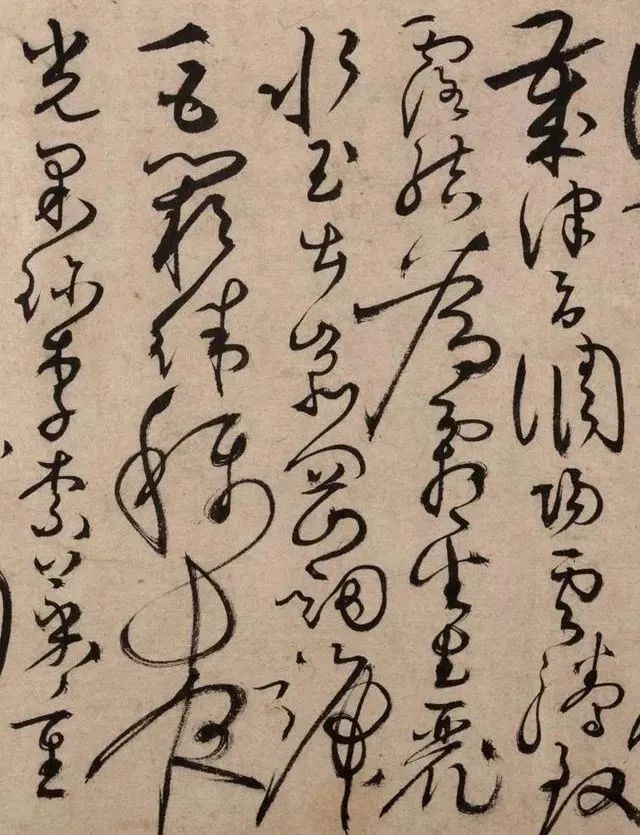 歲律召調陽雲騰致
露結為霜金生麗
水玉出崑岡劍號
巨闕珠稱夜
光果珍李柰菜重